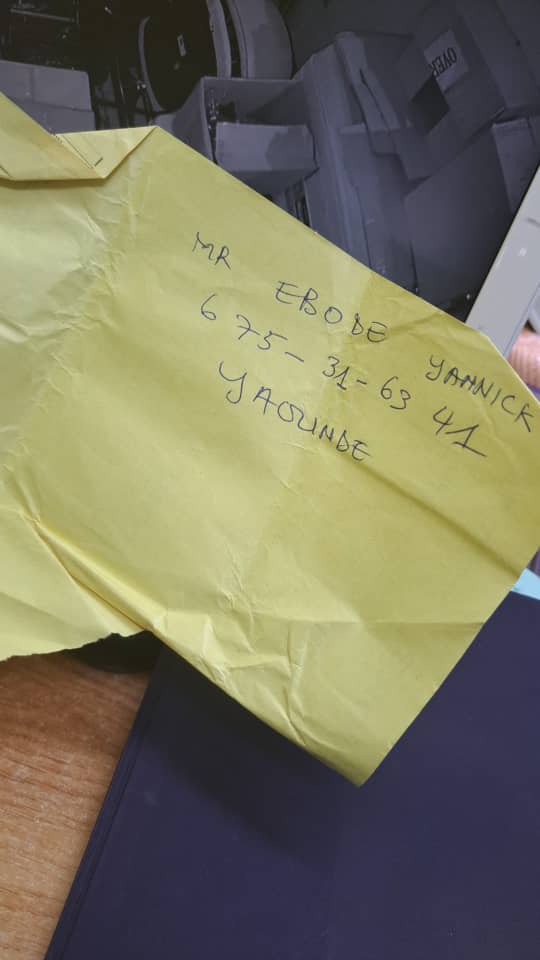 MR EBODE YANNICK
675-31-63 41
YAOUNDE
OVER